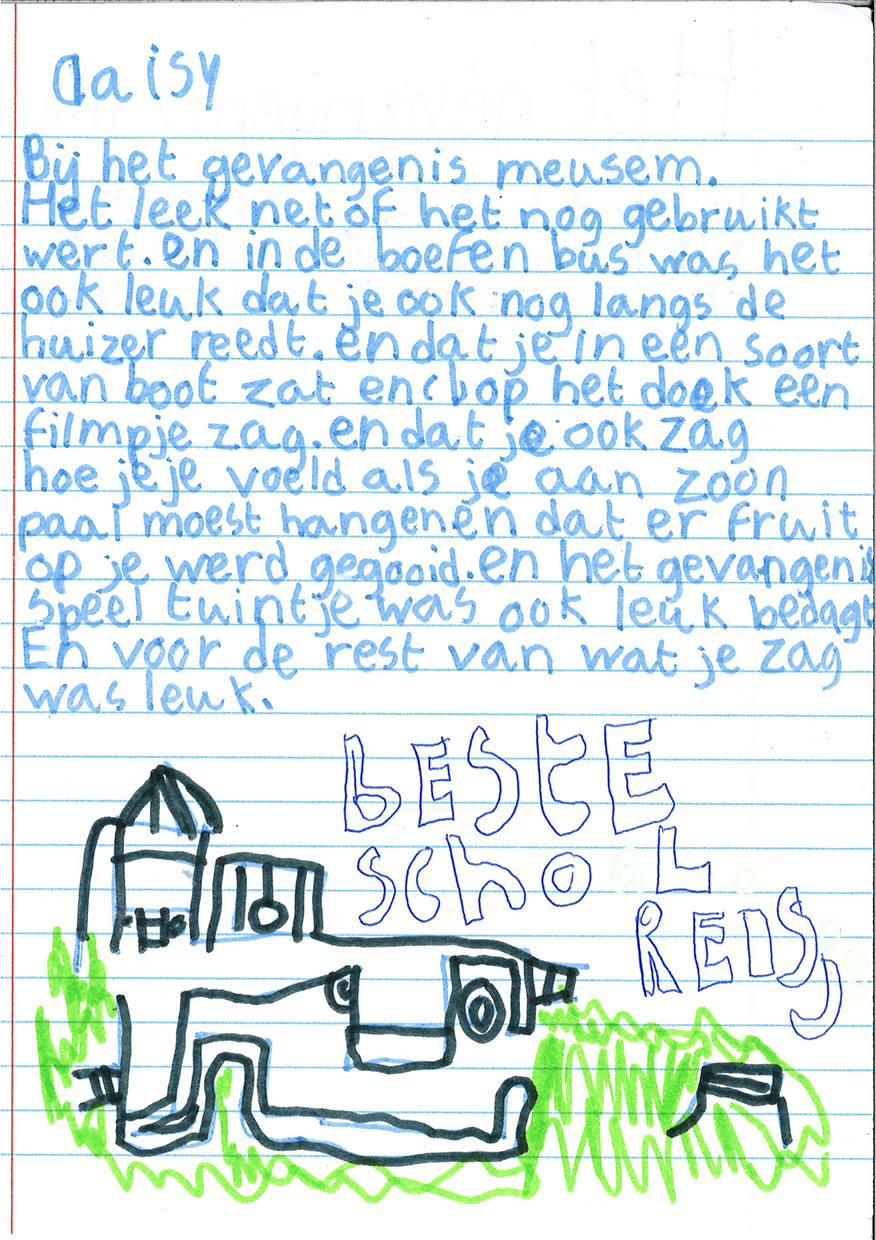 Daisy
Bij het gevangenis meusem.
Het leek net of het nog gebruikt
wert. en in de boefen bus was het
ook leuk dat je ook nog langs de
huizer reedt. en dat je in een soort
van boot zat en op het doek een
filmpje zag. en dat je ook zag
hoe je je voeld als je aan zoon
paal moest hangen en dat er fruit
op je werd gegooid. en het gevangenis
speel tuintje was ook leuk bedagt
En voor de rest van wat je zag
was leuk.
BESTE
SCHOOL
REIS